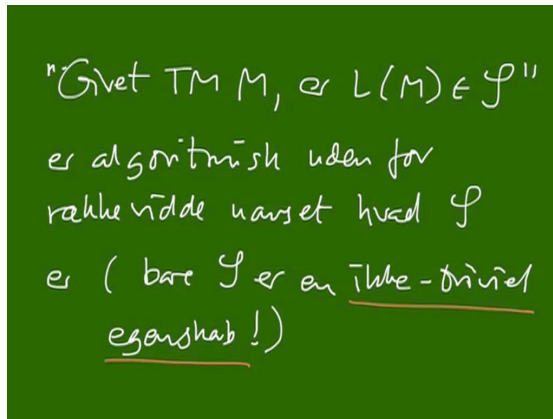 "Givet TM M, er L(M) ∈ 𝒮"
er algoritmisk uden for
rækkevidde uanset hvad 𝒮
er (bare 𝒮 er en ikke-triviel
egenskab!)